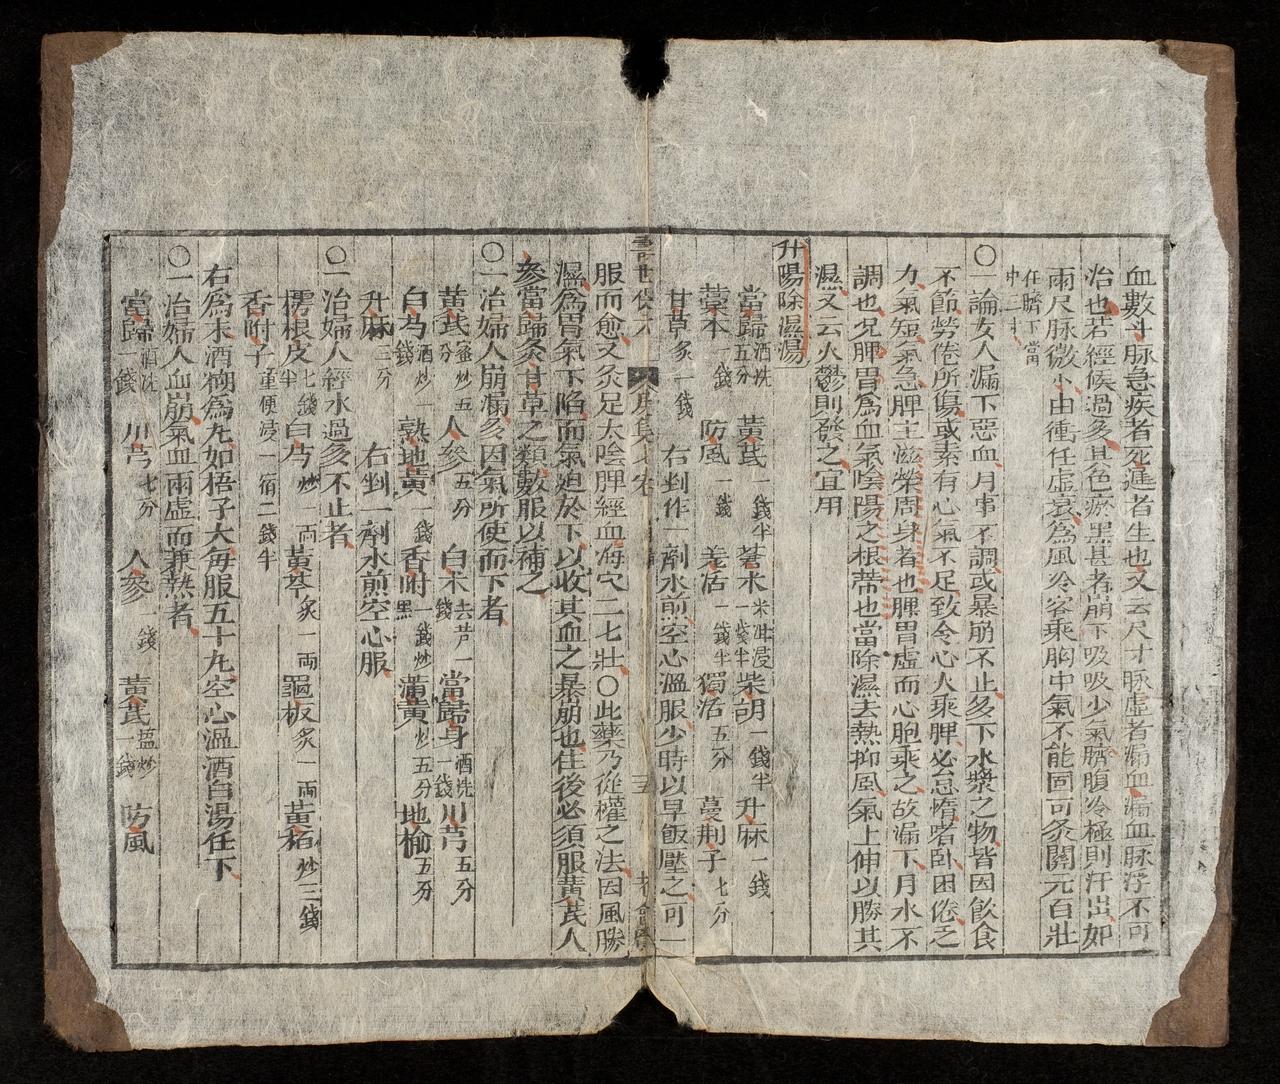 血數斗脉急疾者死遲者生也又云尺寸脉虛者漏血漏血脉浮不可
治也若經候過多其色瘀黑甚者崩下吸吸少氣臍腹冷極則汗出如
雨尺脉微小由衝任虛衰爲風冷客乘胸中氣不能固可灸關元百壯
任臍下當
中三寸
〇一論女人漏下惡血月事不調或暴崩不止多下水漿之物皆因飲食
不節勞倦所傷或素有心氣不足致令心火乘脾必怠惰嗜卧困倦乏
力氣短氣急脾主滋榮周身者也脾胃虛而心胞乘之故漏下月水不
調也況脾胃爲血氣陰陽之根蒂也當除濕去熱抑風氣上伸以勝其
濕又云火鬱則發之宜用
升陽除濕湯
當歸酒洗五分 黃芪一錢半 蒼朮米泔浸一錢半 柴胡一錢半 升麻一錢
藁本一錢 防風一錢 羌活一錢半 獨活五分 蔓荆子七分
甘草炙一錢 右剉作一劑水煎空心溫服少時以早飯壓之可一
壽世保元 庚集七卷 三五
服而愈又灸足太陰脾經血海穴二七壯〇此藥乃從權之法因風勝
濕爲胃氣下陷而氣迫於下以收其血之暴崩也住後必須服黃芪人
參當歸灸甘草之類數服以補之
〇一治婦人崩漏多因氣所使而下者
黃芪蜜炒五分 人參五分 白朮去芦一錢 當歸身酒洗一錢 川芎五分
白芍酒炒一錢 熟地黃一錢 香附一錢炒黑 蒲黃炒五分 地榆五分
升麻三分 右剉一劑水煎空心服
〇一治婦人經水過多不止者
樗根皮七錢半 白芍炒一兩 黃芩炙一兩 龜板炙一兩 黃栢炒三錢
香附子童便浸一宿二錢半
右爲末酒糊爲丸如梧子大每服五十丸空心溫酒白湯任下
〇一治婦人血崩氣血兩虛而兼熱者
當歸酒洗一錢 川芎七分 人參一錢 黃芪塩炒一錢 防風